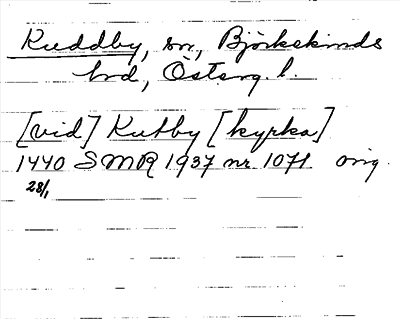 Kuddby, sn, Björkekinds
hd, Österg. l.
[vid] Kutby [kyrka]
1440 SMR 1937 nr 1071 orig.
28/1